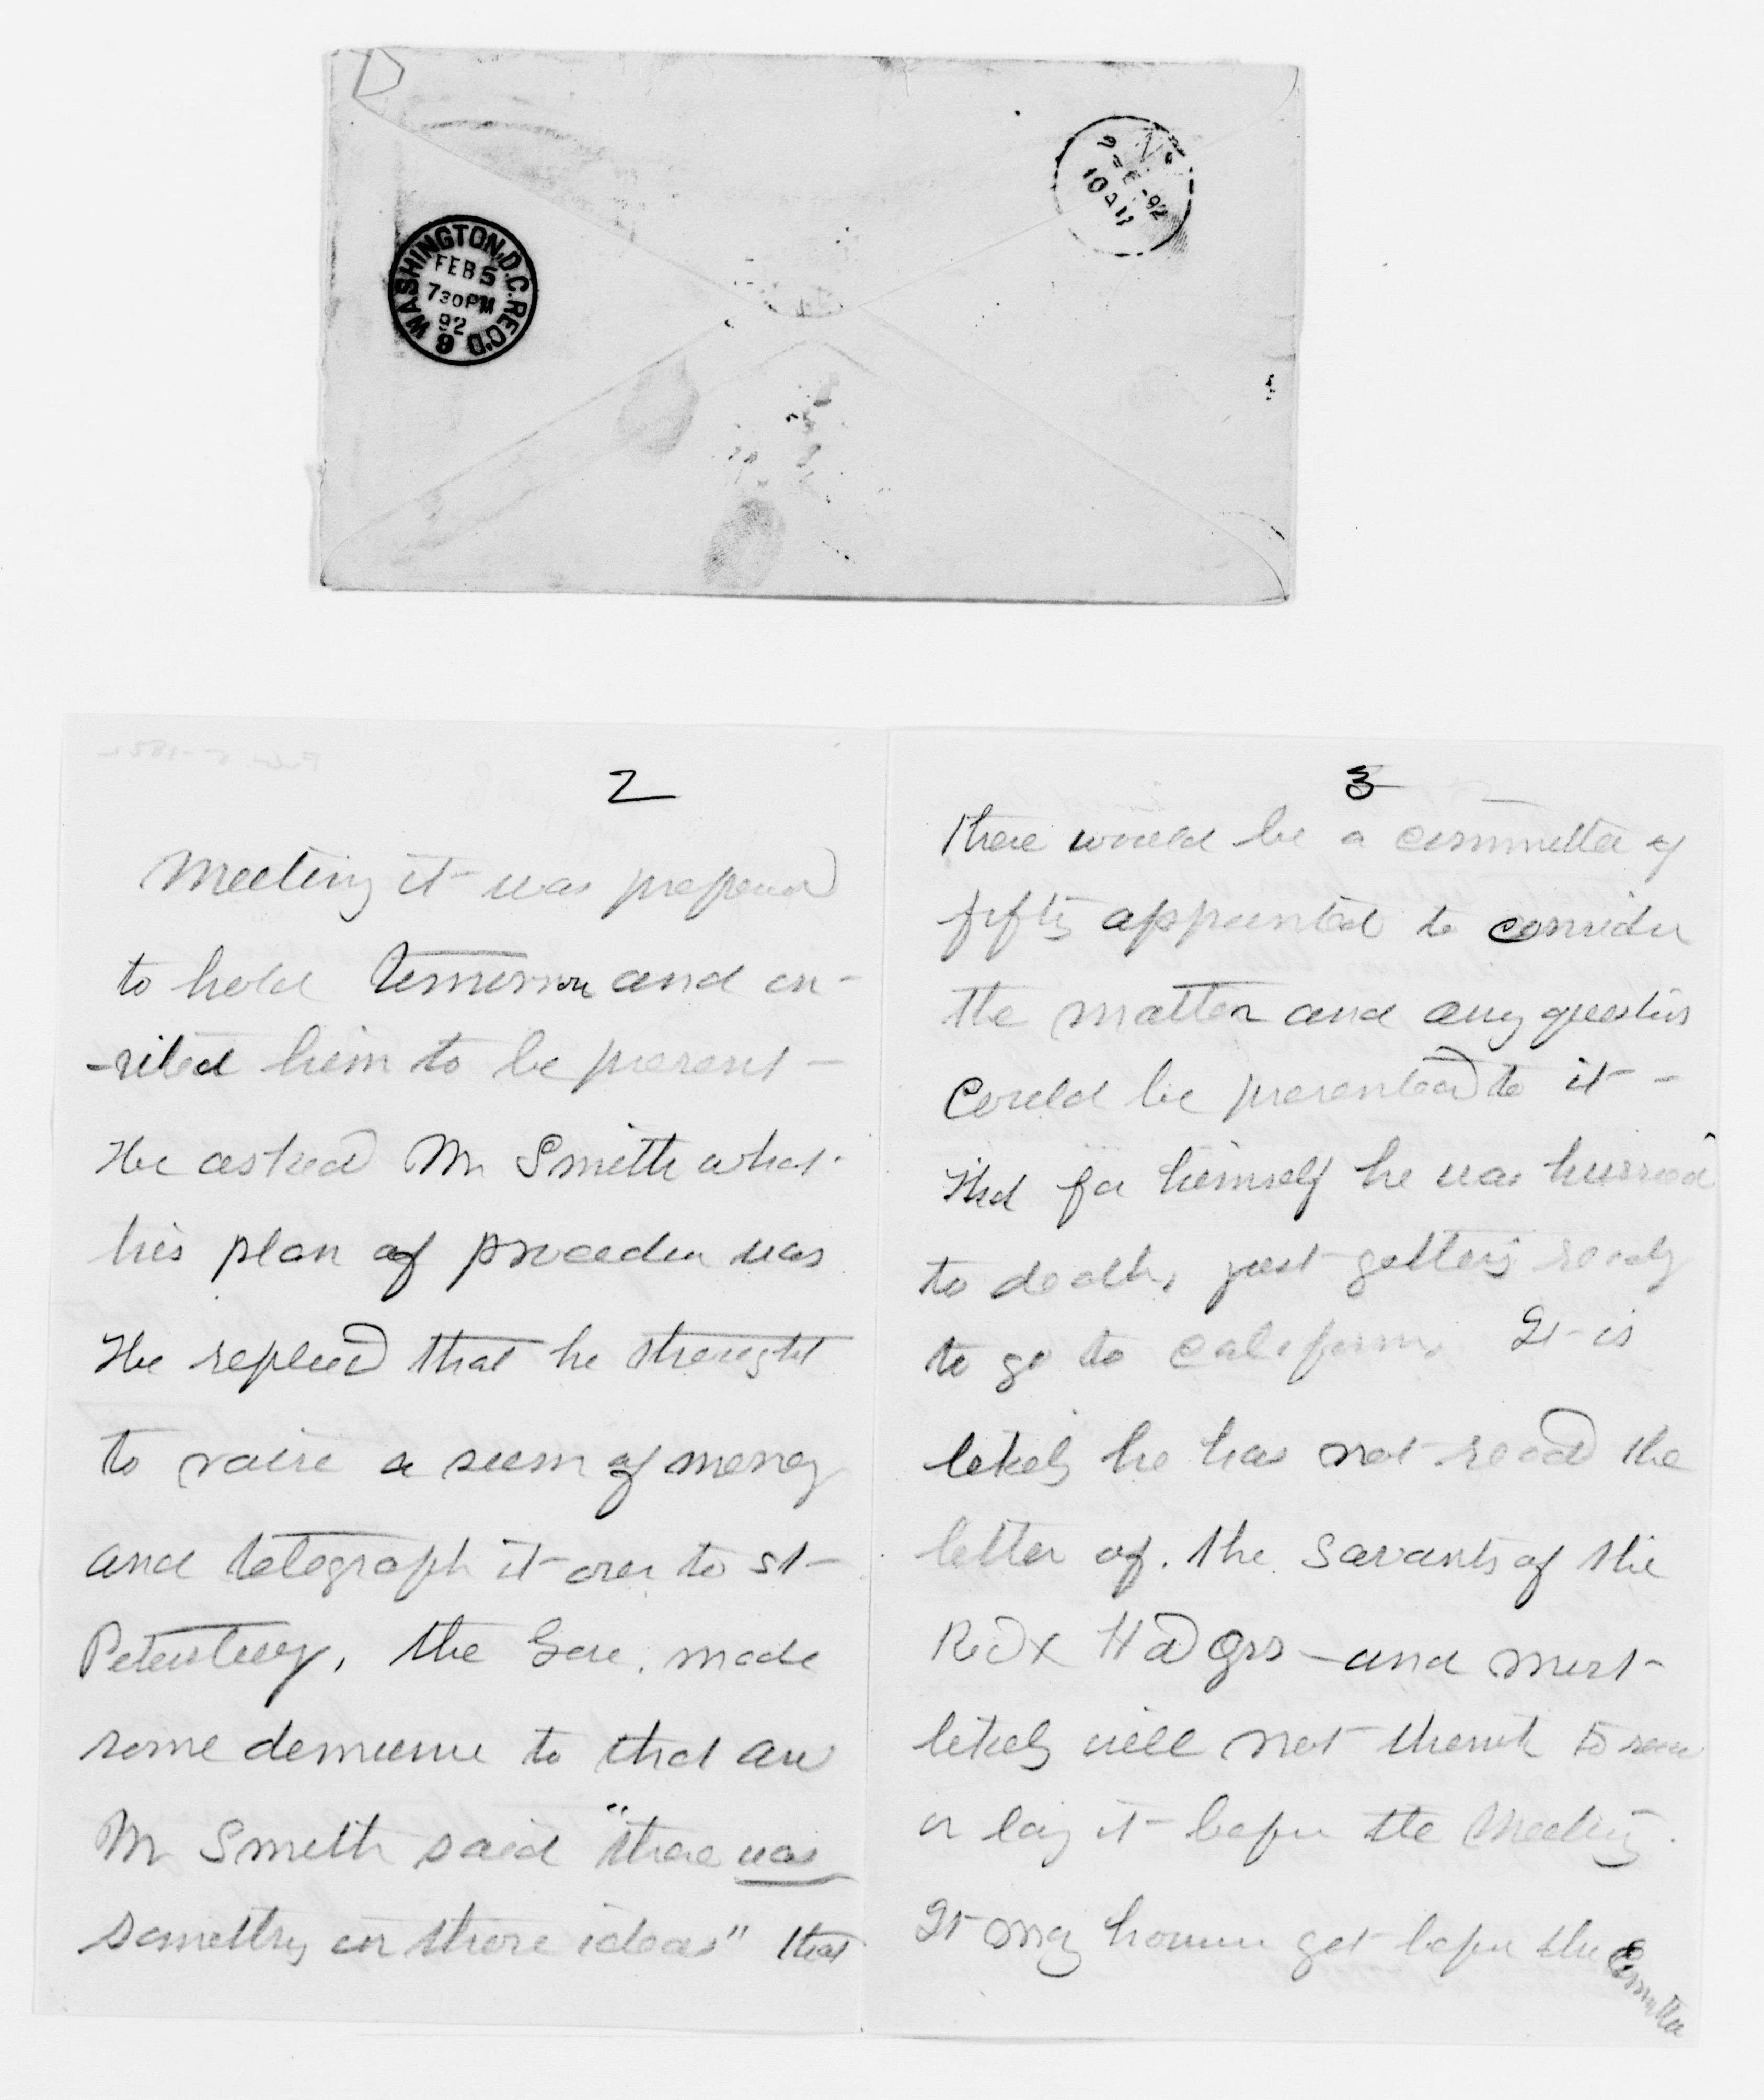 WASHINGTON, D.C. REC'D
FEB 5
7 30 PM
92
8
92
10
2
Meeting it was proposed
to hold tomorrow and in-
-vited him to be present -
He asked Mr Smith what
his plan of procedure was
He replied that he thought
to raise a sum of money
and telegraph it over to St-
Petersburg, the Gov. made
some demurrer to that and
Mr Smith said "there was
something in those ideas" that
3
there would be a committee of
fifty appointed to consider
the matter and any question
could be presented to it -
that for himself he was hurried
to death, just getting ready
to go to California, It is
likely he has not read the
letter of the Savants of the
Red X Hd Qrs - and most
likely will not think to read
or lay it before the Meeting.
It may however get before the Committee